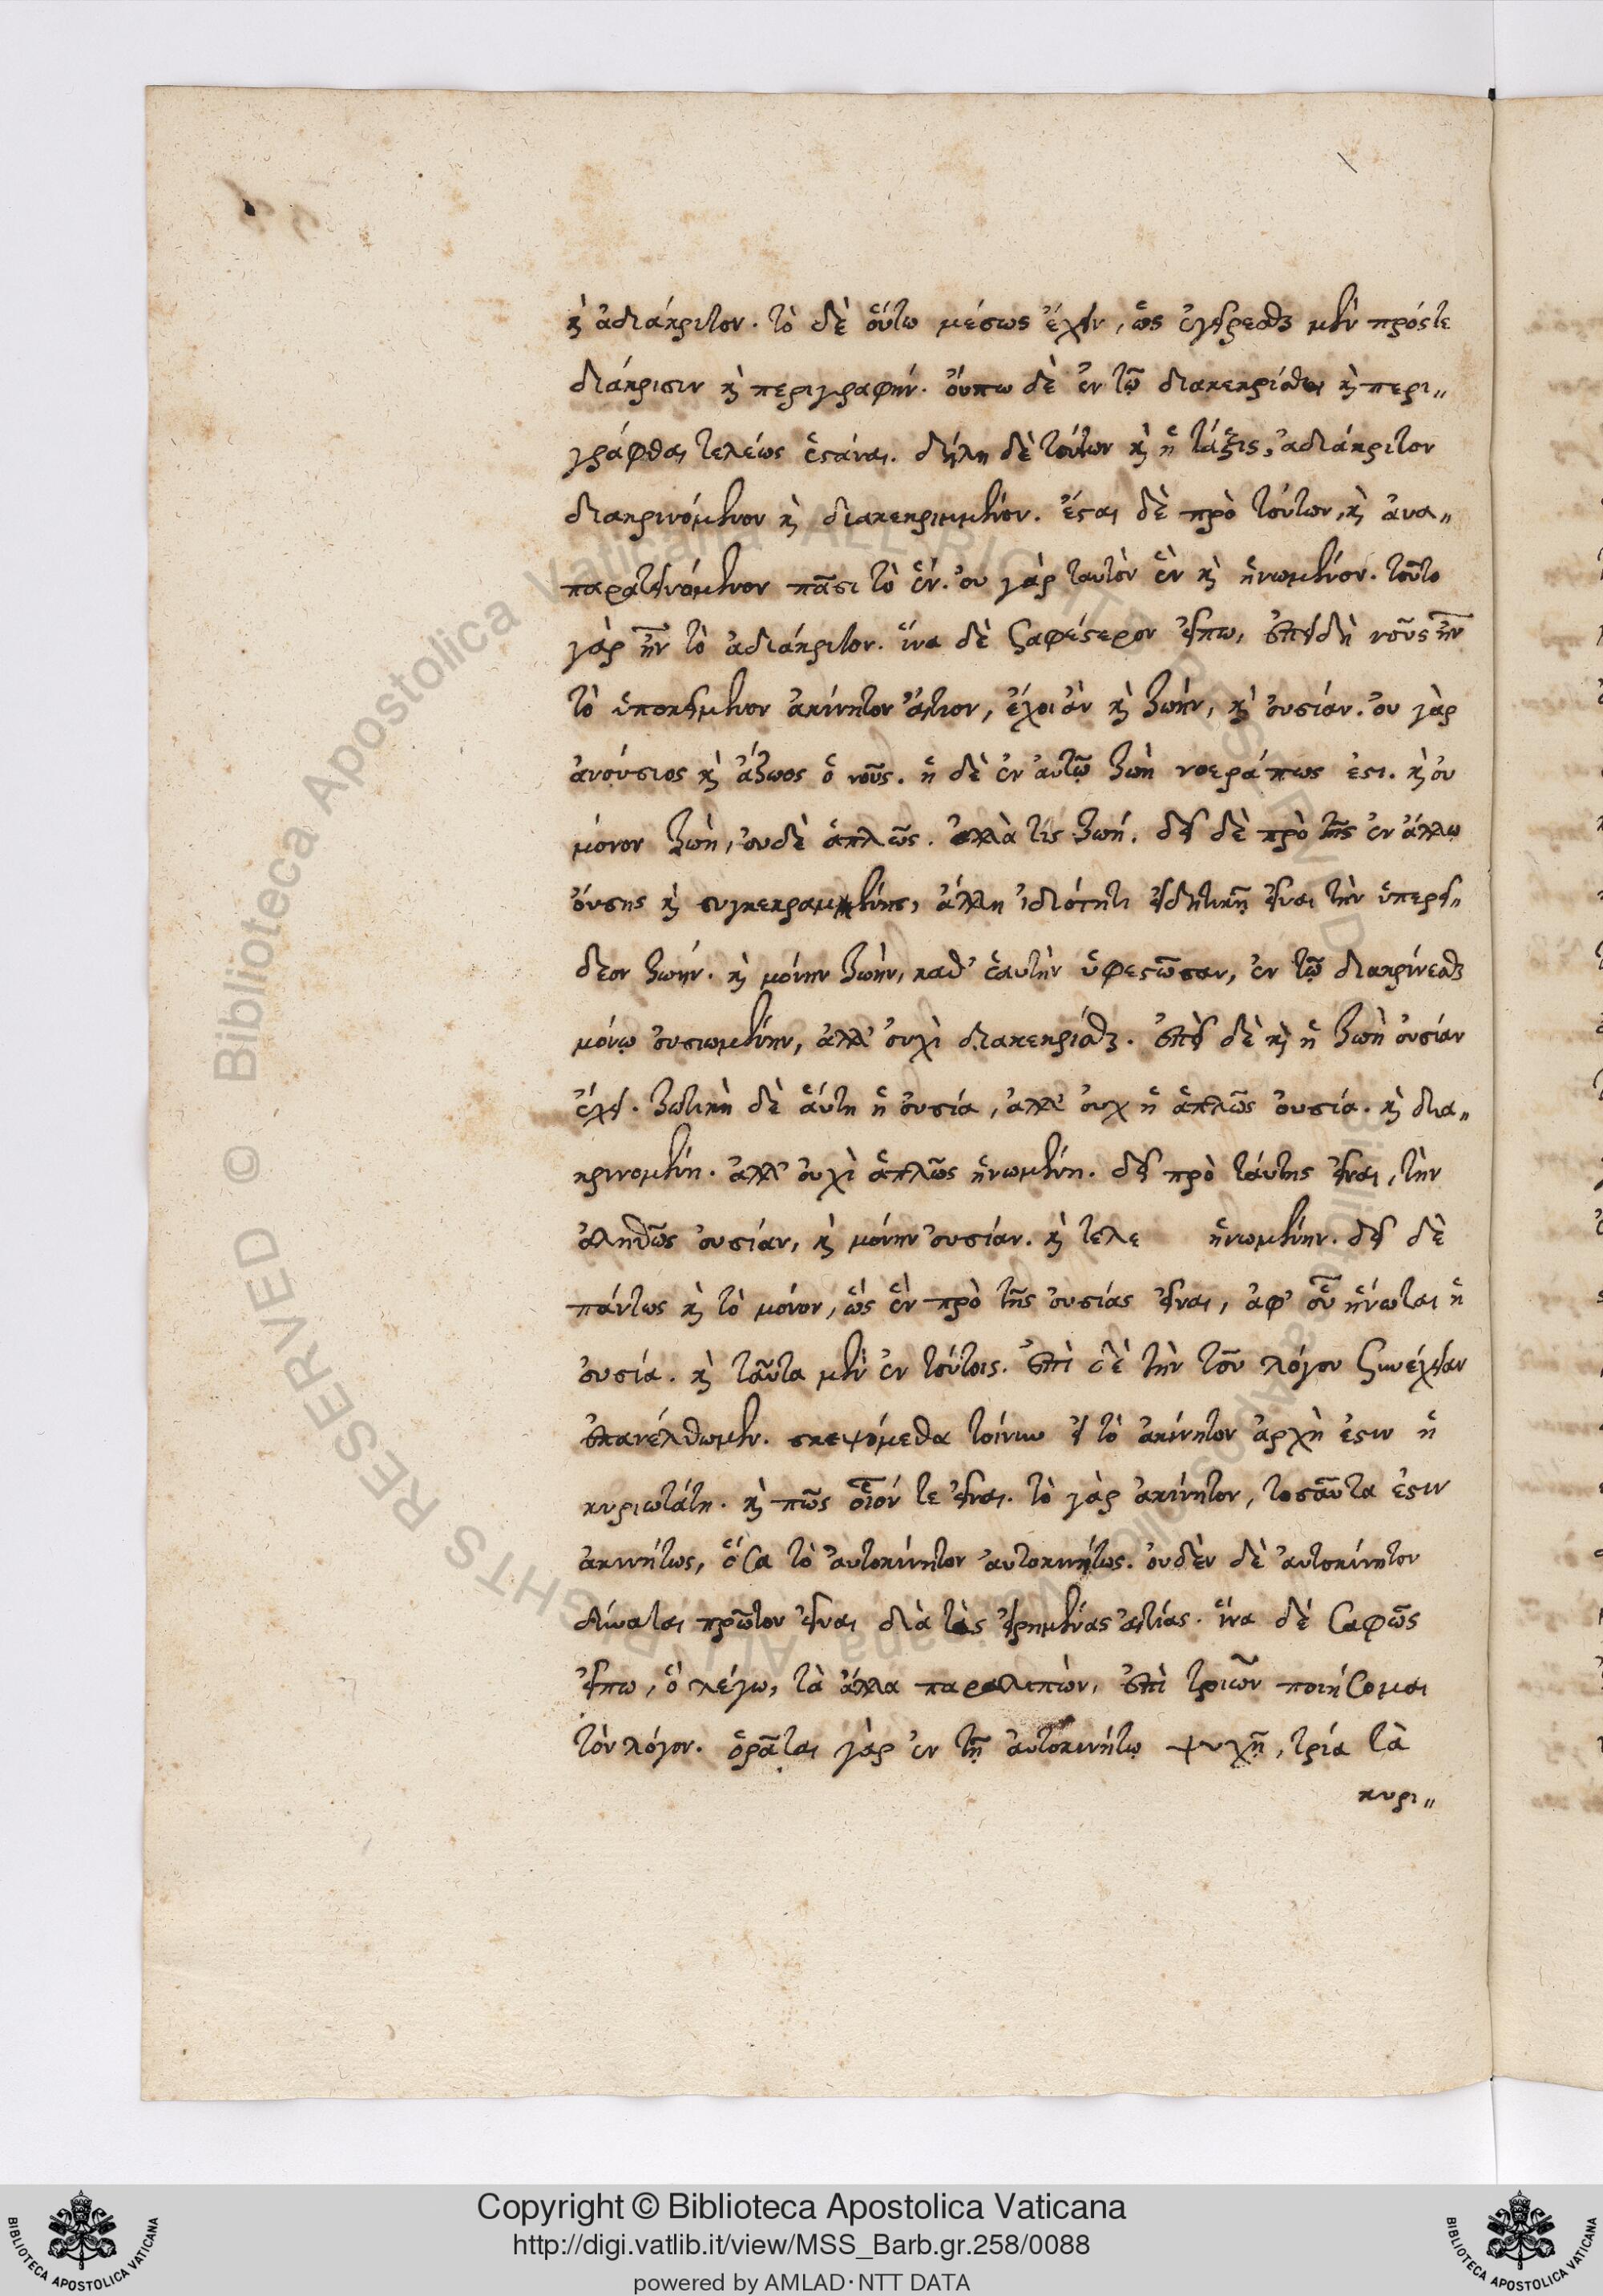 κ̀ ἀδιάκριτον. τὸ δὲ οὕτω μέσως ἔχειν, ὡς ἐγείρεσθαι μὲν πρός τε
διάκρισιν κ̀ περιγραφήν. οὔπω δὲ ἐν τῷ διακεκρίσθαι κ̀ περι„
γράφθαι τελέως ἑστάναι. δήλη δὲ τούτων κ̀ ἡ τάξις, ἀδιάκριτον
διακρινόμενον κ̀ διακεκριμμένον. ἔσται δὲ πρὸ τούτων, κ̀ ἀνα„
παρατεινόμενον πᾶσι τὸ ἕν. οὐ γὰρ ταυτὸν ἓν κ̀ ἡνωμένον. τοῦτο
γὰρ ἦν τὸ ἀδιάκριτον. ἵνα δὲ σαφέστερον εἴπω, ἐπειδὴ νοῦς ἦν
τὸ ὑποκείμενον ἀκίνητον αἴτιον, ἔχοι ἂν κ̀ ζωήν, κ̀ οὐσίαν. οὐ γὰρ
ἀνούσιος κ̀ ἄζωος ὁ νοῦς. ἡ δὲ ἐν αὐτῷ ζωὴ νοερά πως ἐστι. κ̀ οὐ
μόνον ζωὴ, οὐδὲ ἁπλῶς. ἀλλὰ τὶς ζωή. δεῖ δὲ πρὸ τῆς ἐν ἄλλῳ
οὔσης κ̀ συγκεκραμένης, ἄλλῃ ἰδιότητι εἰδητικῇ εἶναι τὴν ὑπερεί„
δεον ζωήν. κ̀ μόνην ζωήν, καθ' ἑαυτὴν ὑφεστῶσαν, ἐν τῷ διακρίνεσθαι
μόνῳ οὐσιωμένην, ἀλλ' οὐχὶ διακεκρίσθαι. ἐπεὶ δὲ κ̀ ἡ ζωὴ οὐσίαν
ἔχει. ζωτικὴ δὲ αὕτη ἡ οὐσία, ἀλλ' οὐχ ἡ ἁπλῶς οὐσία. κ̀ δια„
κρινομένη. ἀλλ' οὐχὶ ἁπλῶς ἡνωμένη. δεῖ πρὸ ταύτης εἶναι, τὴν
ἀληθῶς οὐσίαν, κ̀ μόνην οὐσίαν. κ̀ τελε ἡνωμένην. δεῖ δὲ
πάντως κ̀ τὸ μόνον, ὡς ἓν πρὸ τῆς οὐσίας εἶναι, ἀφ' οὗ ἥνωται ἡ
οὐσία. κ̀ ταῦτα μὲν ἐν τούτοις. ἐπὶ δὲ τὴν τοῦ λόγου συνέχειαν
ἐπανέλθωμεν. σκεψόμεθα τοίνυν εἰ τὸ ἀκίνητον ἀρχὴ ἐστιν ἡ
κυριωτάτη. κ̀ πῶς οἷόν τε εἶναι. τὸ γὰρ ἀκίνητον, τοσαῦτα ἐστιν
ἀκινήτως, ὅσα τὸ αὐτοκίνητον αὐτοκινήτως. οὐδὲν δὲ αὐτοκίνητον
δύναται πρῶτον εἶναι διὰ τὰς εἰρημένας αἰτίας. ἵνα δὲ σαφῶς
εἴπω, ὃ λέγω, τὰ ἄλλα παραλιπὼν, ἐπὶ τριῶν ποιήσομαι
τὸν λόγον. ὁρᾶται γὰρ ἐν τῇ αὐτοκινήτῳ ψυχῇ, τρία τὰ
κυρι„
Copyright © Biblioteca Apostolica Vaticana
http://digi.vatlib.it/view/MSS_Barb.gr.258/0088
powered by AMLAD·NTT DATA